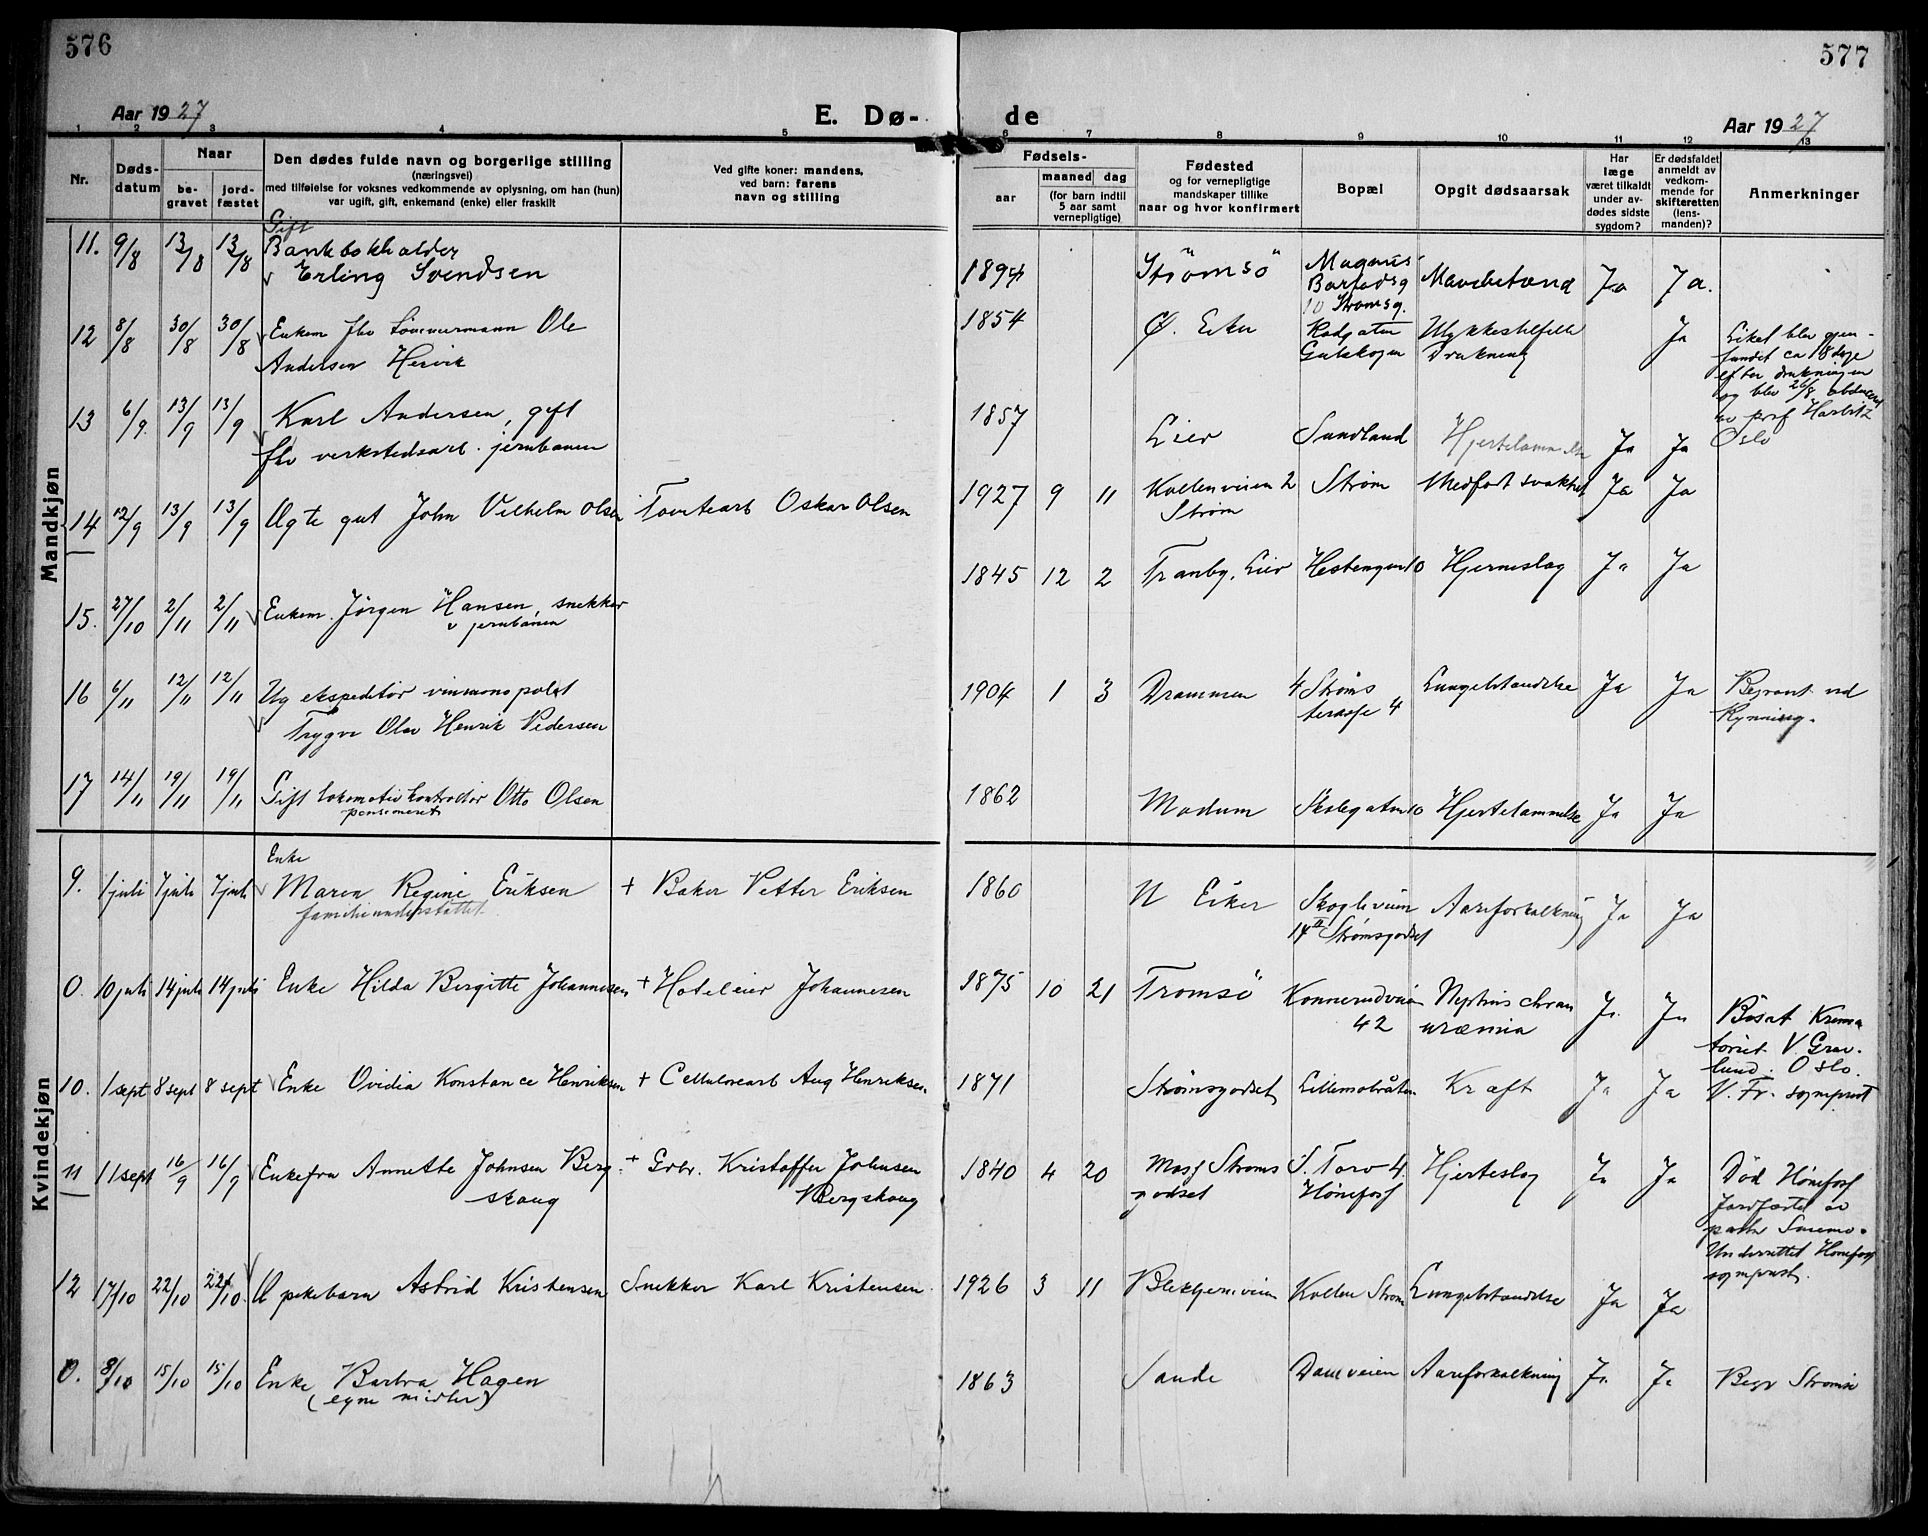 576
577
Aar 1927
E. Dø-
de
Aar 1927
1 2 3 4 5 6 7 8 9 10 11 12 13
Nr.
Døds-
datum
Naar
be-
gravet
jord-
fæstet
Den dødes fulde navn og borgerlige stilling
(næringsvei)
med tilføielse for voksnes vedkommende av oplysning, om han (hun)
var ugift, gift, enkemand (enke) eller fraskilt
Ved gifte koner: mandens,
ved barn: farens
navn og stilling
Fødsels-
aar
maaned dag
(for barn indtil
5 aar samt
vernepligtige)
Fødested
og for vernepligtige
mandskaper tillike
naar og hvor konfirmert
Bopæl
Opgit dødsaarsak
Har
læge
været tilkaldt
under av-
dødes sidste
sygdom?
Er dødsfaldet
anmeldt av
vedkom-
mende for
skifteretten
(lens-
manden)?
Anmerkninger
Mandkjøn
11. 9/8 13/8 13/8 Gift
Bankbokholder
Erling Svendsen
1894 Strömsö Magnus
Barfodsg
10 Strømsg. Mavebetænd Ja Ja.
12 8/8 30/8 30/8 Enkem fhv tömmermann Ole
Andersen Hervik
1854 Ø. Eker Rødgaten
Gulskogen Ulykkestilfelle
Drukning Ja Liket blev gjen-
fundet ca 18 dage
efter drukningen
og blev 26/8 obducert
av prof Harbitz
Oslo
13 6/9. 13/9 13/9 Karl Andersen, gift
fhv verkstedsarb. jernbanen
1857 Lier Sundland Hjertelammelse Ja Ja
14 12/9 13/9 13/9 Ugte gut John Vilhelm Olsen Tomtearb Oskar Olsen
1927 9 11 Kollenveien 2
Strøm Strøm Medfødt svakhet Ja Ja
15. 27/10 2/11 2/11 Enkem. Jørgen Hansen, snekker
v jernbanen
1845 12 2 Tranby, Lier Hestengen 10 Hjerneslag Ja Ja
16 6/11 12/11 12/11 Ug ekspeditør vinmonopolet
Trygve Olav Henrik Pedersen
1904 1 3 Drammen 4 Strøms
terasse 4 Lungebetændelse Ja Ja Begravet ved
Rynning.
17 14/11 19/11 19/11 Gift lokomotiv kontrollør Otto Olsen
pensioneret
1862 Modum Skolegaten 10 Hjertelammelse Ja Ja
Kvindekjøn
9. 1 juli 7 juli 7 juli Enke
Maren Regine Eriksen + Baker Petter Eriksen
familieunderstøttet
1860 N Eiker Skogliveien
14 II Strømsgodset Aareforkalkning Ja Ja
0. 10 juli 14 juli 14 juli Enke Hilda Bergitte Johannesen + Hoteleier Johannesen
1875 10 21 Tromsö Konnerudveien
42 Nephris chron
uræmia Ja Ja Bisat Krema
toriet V Grav-
lund. Oslo.
10. 1 sept 8 sept 8 sept Enke Ovidia Konstance Henriksen + Cellulosearb Aug Henriksen
1871 Strømsgodset Lillemotråten Kræft Ja Ja V. Fr. sogneprest
11 11 sept 16/9 16/9 Enkefru Annette Johnsen Berg- + Grbr. Kristoffer Johnsen
skaug Bergskaug
1840 4 20 Mosj Strøms
godset S. Torv 4,
Hönefoss Hjerteslag Ja Ja Död Hönefoss
Jordfæstet av
Underrettet Hönefoss
sogneprest.
12 17/10 22/10 22/10 U pikebarn Astrid Kristensen Snekker Karl Kristensen
1926 3 11 Blekkjernveien Kollen Strøm Lungebetændelse Ja Ja
0. 8/10 15/10 15/10 Enke Barbra Hagen
(egne midler)
1863 Sande Damveien Aareforkalkning Ja Ja Begr Strømsö